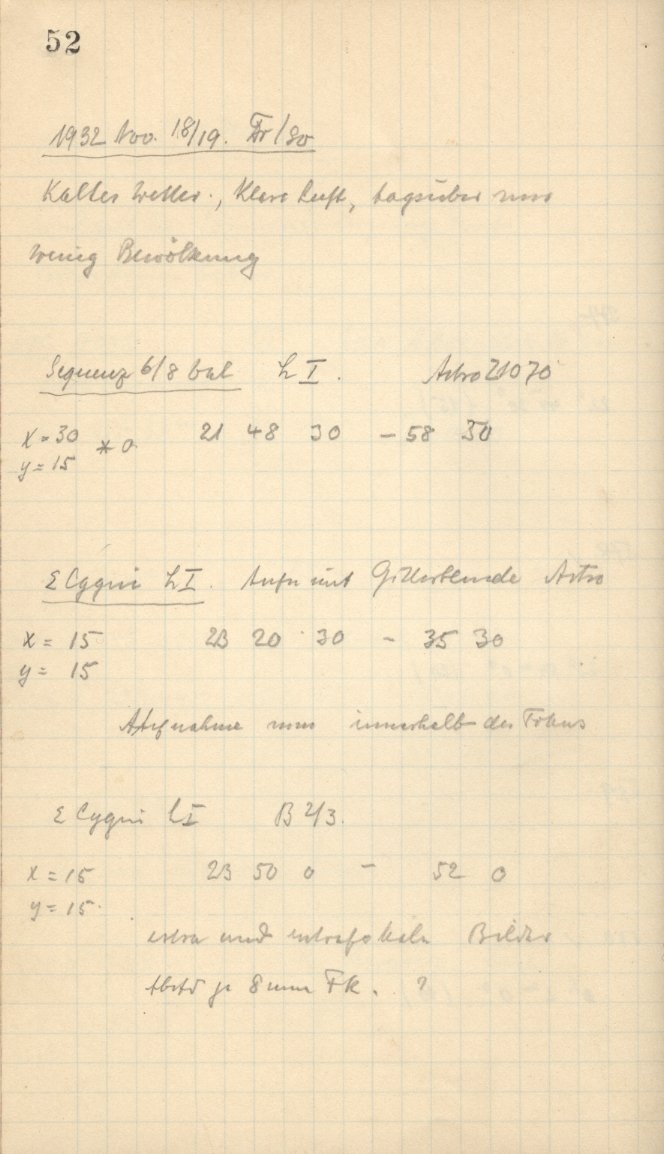 52
1932 Nov. 18/19. Fr/So
Kaltes Wetter., Klare Luft, tagsüber nur
wenig Bewölkung
Sequenz 6/8 bal h I. Astro 21070
x = 30 * a 21 48 30 - 58 50
y = 15
ε Cygni h I. Aufn mit Gitterblende Astro
x = 15 23 20 30 - 35 30
y = 15
Aufnahme nur innerhalb des Fokus
ε Cygni h I B 2/3.
x = 15 23 50 0 - 52 0
y = 15.
extra und intrafokale Bilder
Abstd je 8 mm Fk. ?